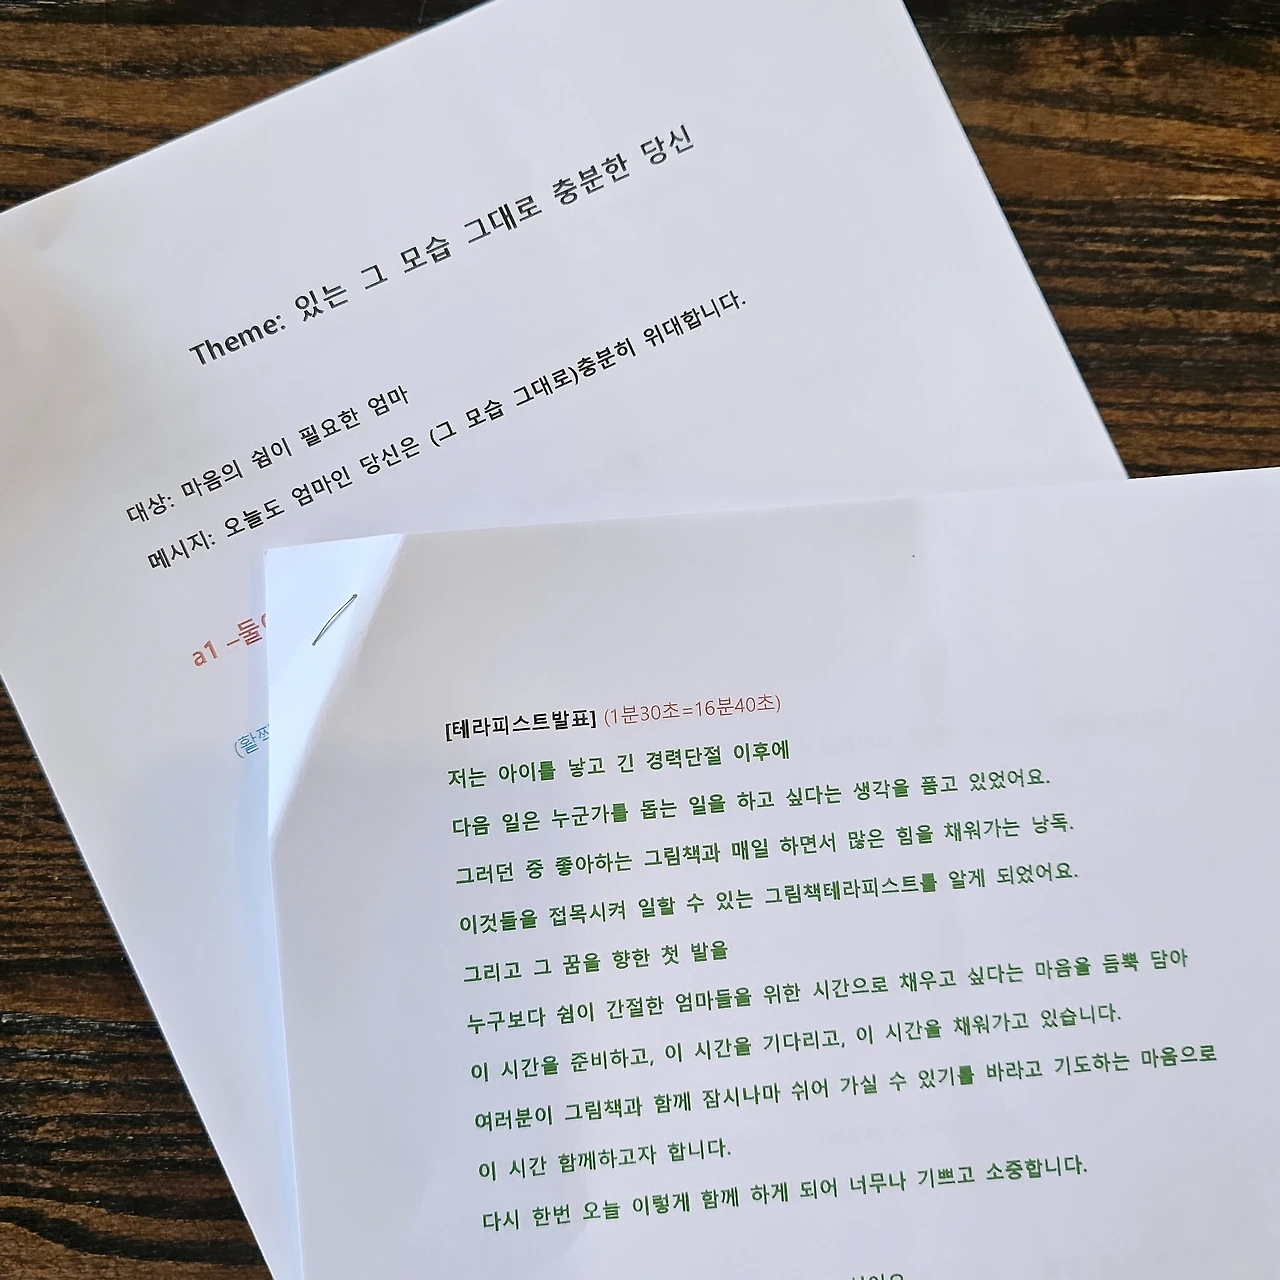 Theme: 있는 그 모습 그대로 충분한 당신
대상: 마음의 쉼이 필요한 엄마
메시지: 오늘도 엄마인 당신은 (그 모습 그대로)충분히 위대합니다.
a1 –
[테라피스트발표] (1분30초=16분40초)
저는 아이를 낳고 긴 경력단절 이후에
다음 일은 누군가를 돕는 일을 하고 싶다는 생각을 품고 있었어요.
그러던 중 좋아하는 그림책과 매일 하면서 많은 힘을 채워가는 낭독.
이것들을 접목시켜 일할 수 있는 그림책테라피스트를 알게 되었어요.
그리고 그 꿈을 향한 첫 발을
누구보다 쉼이 간절한 엄마들을 위한 시간으로 채우고 싶다는 마음을 듬뿍 담아
이 시간을 준비하고, 이 시간을 기다리고, 이 시간을 채워가고 있습니다.
여러분이 그림책과 함께 잠시나마 쉬어 가실 수 있기를 바라고 기도하는 마음으로
이 시간 함께하고자 합니다.
다시 한번 오늘 이렇게 함께 하게 되어 너무나 기쁘고 소중합니다.